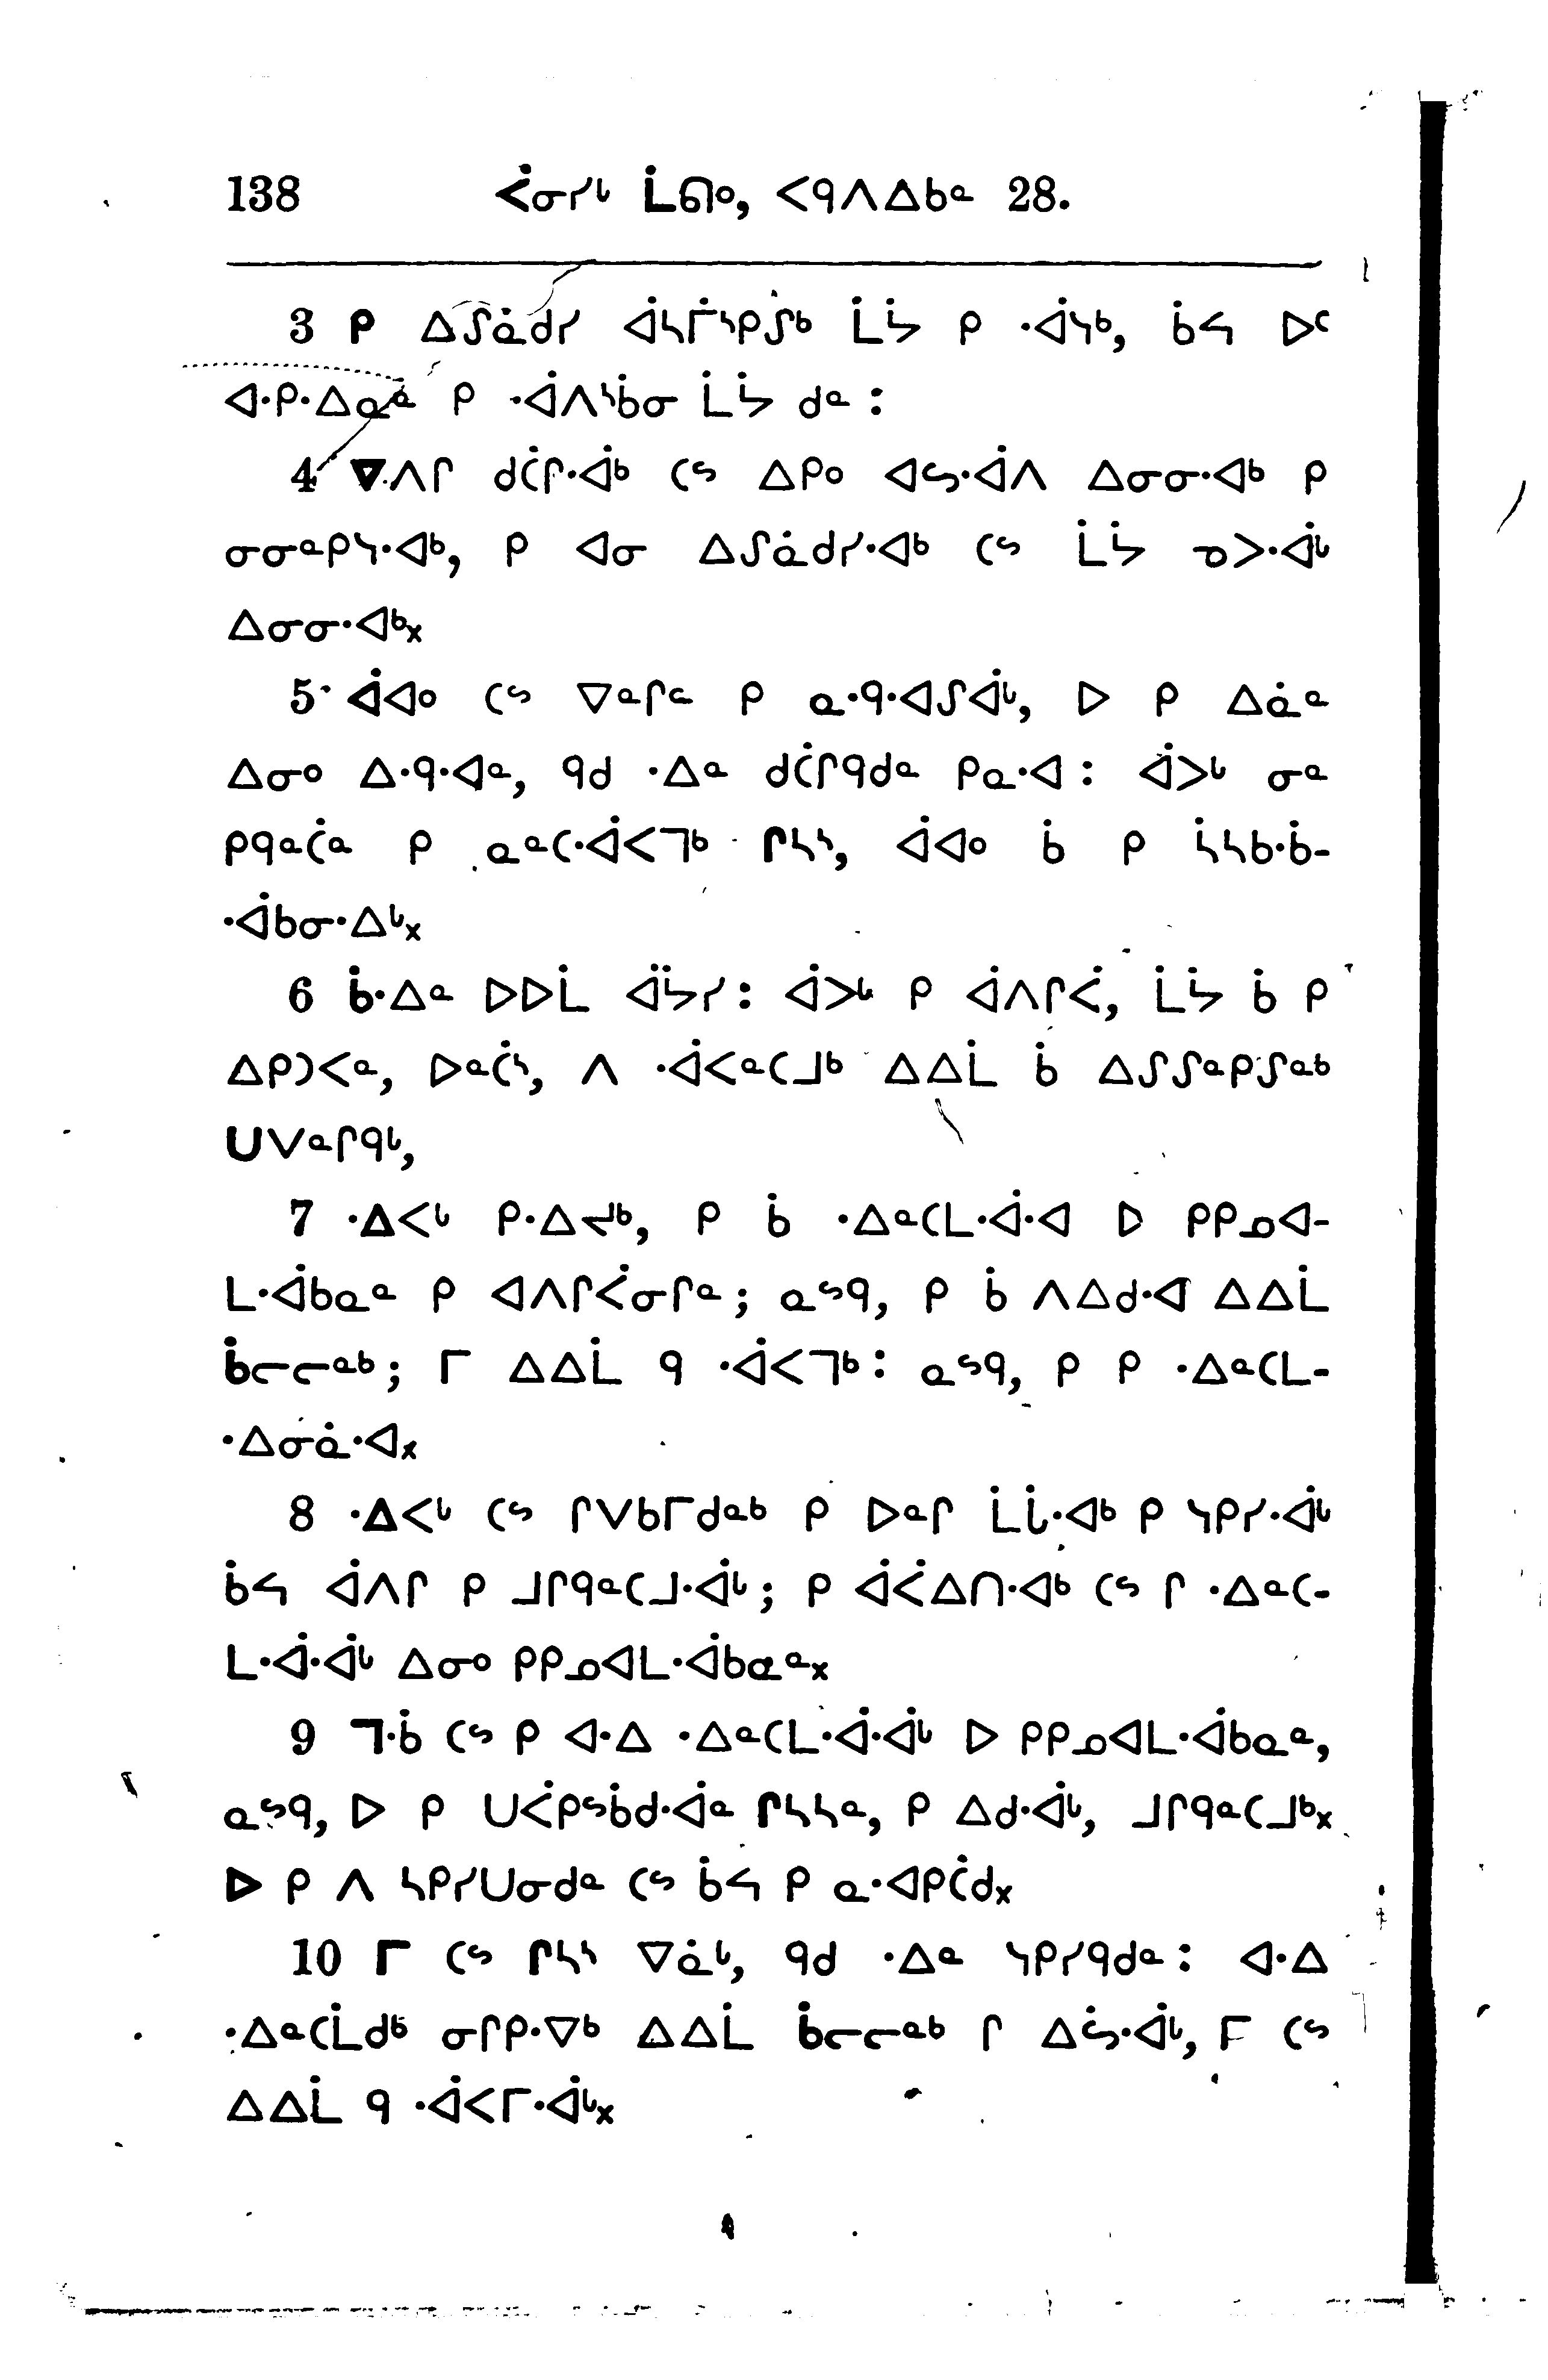 138 ᐹᓂᓯᒡ ᒫᘏᐤ, ᐸᑫᐱᐃᑲᓐ 28.
3 ᑭ ᐃᔑᓈᑯᓯ ᐋᓴᒦᔅᑭᔑᒃ ᒫᔮ ᑭ ᐙᓭᒃ, ᑳᔕ ᐅᑦ
ᐊᐧᑭᐧᐃᓇᓐ ᑭ ᐚᐱᔅᑳᓂ ᒫᔮ ᑯᓐ :
4 ᐁᐧᐱᒋ ᑯᑖᒋᐧᐋᒃ ᑕᔥ ᐃᑭᐤ ᐊᔕᐧᐋᐱ ᐃᓂᓂᐧᐊᒃ ᑭ
ᓂᓂᓐᑭᓭᐧᐊᒃ, ᑭ ᐊᓂ ᐃᔑᓈᑯᓯᐧᐊᒃ ᑕᔥ ᒫᔮ ᓀᐳᐧᐋᒡ
ᐃᓂᓂᐧᐊᒃₓ
5 ᐋᐊᐤ ᑕᔥ ᐁᓐᒋᓪ ᑭ ᓇᐧᑫᐧᐊᔑᐋᒡ, ᐅ ᑭ ᐃᓈᓐ
ᐃᓂᐤ ᐃᐧᑫᐧᐊᓐ, ᑫᑯ ᐧᐃᓐ ᑯᑖᒋᑫᑯᓐ ᑭᓇᐧᐊ : ᐋᐳᒡ ᓂᓐ
ᑭᑫᓐᑖᓐ ᑭ ᓇᓐᑕᐧᐋᐸᒣᒃ ᒋᓴᔅ, ᐋᐊᐤ ᑳ ᑭ ᓵᓴᑲᐧᑳ-
ᐧᐋᑲᓂᐧᐃᒡₓ
6 ᑳᐧᐃᓐ ᐅᐅᒫ ᐋᔮᓯ : ᐋᐳᒡ ᑭ ᐋᐱᒋᐹ, ᒫᔮ ᑳ ᑭ
ᐃᑭᑐᐸᓐ, ᐅᓐᑖᔅ, ᐱ ᐧᐋᐸᓐᑕᒧᒃ ᐃᐃᒫ ᑳ ᐃᔑᔑᓐᑭᔑᓐᒃ
ᑌᐯᓐᒋᑫᒡ,
7 ᐧᐃᐸᒡ ᑭᐧᐃᔪᒃ, ᑭ ᑳ ᐧᐃᓐᑕᒪᐧᐋᐧᐊ ᐅ ᑭᑭᓄᐊ-
ᒪᐧᐋᑲᓇᓐ ᑭ ᐊᐱᒋᐹᓂᒋᓐ ; ᓇᔥᑫ, ᑭ ᑳ ᐱᐃᑯᐧᐊ ᐃᐃᒫ
ᑳᓕᓕᓐᒃ ; ᒥ ᐃᐃᒫ ᑫ ᐧᐋᐸᒣᒃ : ᓇᔥᑫ, ᑭ ᑭ ᐧᐃᓐᑕᒪ-
ᐧᐃᓂᓈᐧᐊₓ
8 ᐧᐃᐸᒡ ᑕᔥ ᒋᐯᑲᒥᑯᓐᒃ ᑭ ᐅᓐᒋ ᒫᒑᐧᐊᒃ ᑭ ᓭᑭᓯᐧᐋᒡ
ᑳᔕ ᐋᐱᒋ ᑭ ᒧᒋᑫᓐᑕᒧᐧᐋᒡ ; ᑭ ᐋᐹᐃᑎᐧᐊᒃ ᑕᔥ ᒋ ᐧᐃᓐᑕ-
ᒪᐧᐋᐧᐋᒡ ᐃᓂᐤ ᑭᑭᓄᐊᒪᐧᐋᑲᓇᓐₓ
9 ᒣᐧᑳ ᑕᔥ ᑭ ᐊᐧᐃ ᐧᐃᓐᑕᒪᐧᐋᐧᐋᒡ ᐅ ᑭᑭᓄᐊᒪᐧᐋᑲᓇᓐ,
ᓇᔥᑫ, ᐅ ᑭ ᑌᐹᑭᔥᑳᑯᐧᐋᓐ ᒋᓴᓴᓐ, ᑭ ᐃᑯᐧᐋᒡ, ᒧᒋᑫᓐᑕᒧᒃₓ
ᐅ ᑭ ᐱ ᓴᑭᓯᑌᓂᑯᓐ ᑕᔥ ᑳᔕ ᑭ ᓇᐧᐊᑭᑖᑯₓ
10 ᒥ ᑕᔥ ᒋᓴᔅ ᐁᓈᒡ, ᑫᑯ ᐧᐃᓐ ᓭᑭᓯᑫᑯᓐ : ᐊᐧᐃ
ᐧᐃᓐᑕᒫᑯᒃ ᓂᒋᑭᐧᐁᒃ ᐃᐃᒫ ᑳᓕᓕᓐᒃ ᒋ ᐃᔖᐧᐋᒡ, ᒥ ᑕᔥ
ᐃᐃᒫ ᑫ ᐧᐋᐸᒥᐧᐋᒡₓ